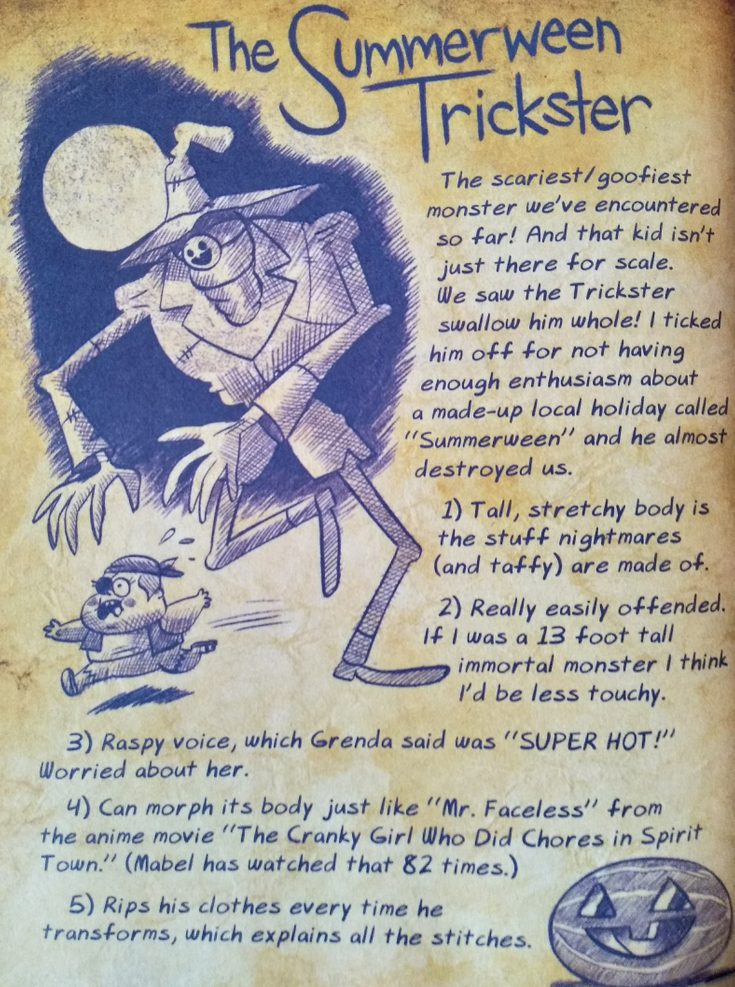 The Summerween
Trickster
The scariest/goofiest
monster we've encountered
so far! And that kid isn't
just there for scale.
We saw the Trickster
swallow him whole! I ticked
him off for not having
enough enthusiasm about
a made-up local holiday called
"Summerween" and he almost
destroyed us.
1) Tall, stretchy body is
the stuff nightmares
(and taffy) are made of.
2) Really easily offended.
If I was a 13 foot tall
immortal monster I think
I'd be less touchy.
3) Raspy voice, which Grenda said was "SUPER HOT!"
Worried about her.
4) Can morph its body just like "Mr. Faceless" from
the anime movie "The Cranky Girl Who Did Chores in Spirit
Town." (Mabel has watched that 82 times.)
5) Rips his clothes every time he
transforms, which explains all the stitches.